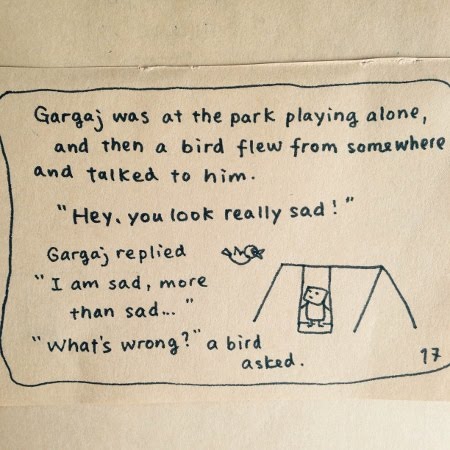 Gargaj was at the park playing alone,
and then a bird flew from somewhere
and talked to him.
"Hey, you look really sad!"
Gargaj replied
"I am sad, more
than sad... "
"What's wrong?" a bird
asked.
17